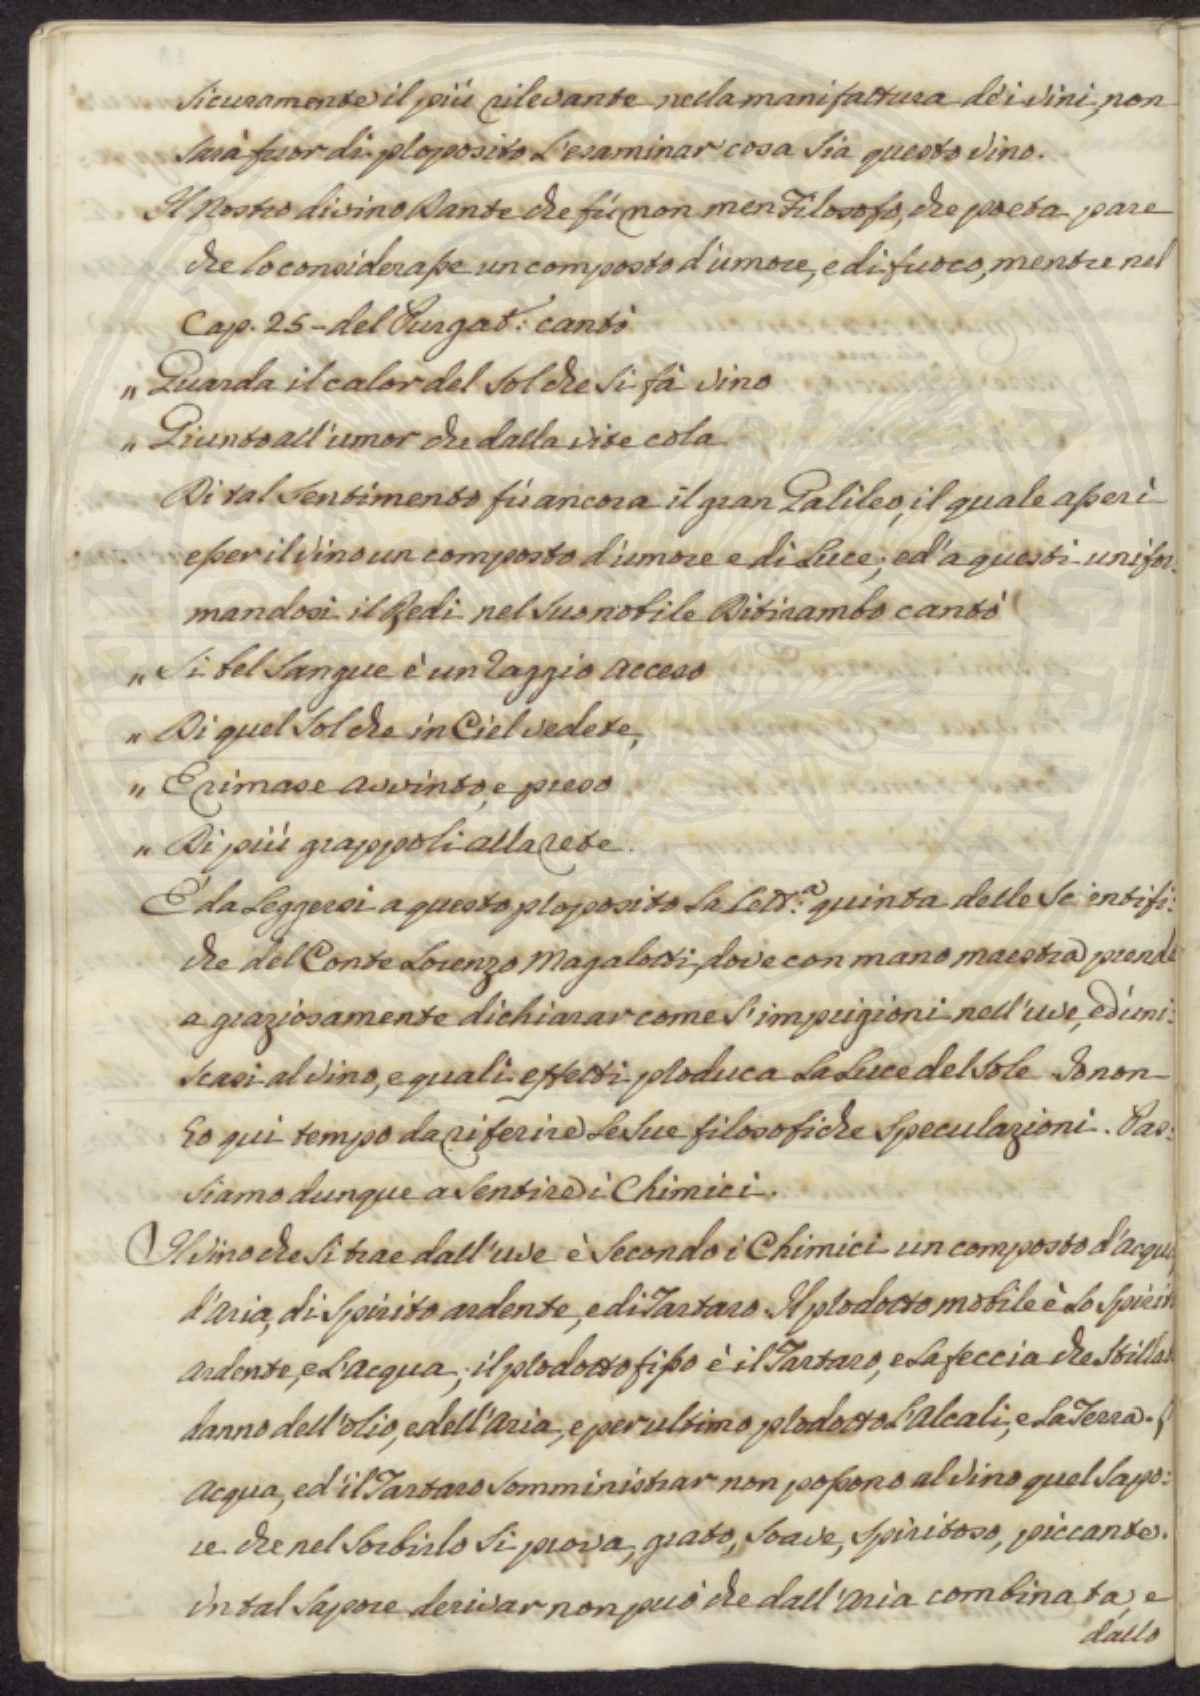 sicuramente il più rilevante nella manifattura dèi vini, non
sarà fuor di proposito l'esaminar cosa sia questo vino.
Il Nostro divino Dante che fù non men Filosofo, che poeta pare
che lo considerasse un composto d'umore, e di fuoco, mentre nel
Cap. 25 - del Purgat.: cantò
„ Guarda il calor del sol che si fà vino
„ Giunto all'umor che dalla vite cola
Di tal sentimento fù ancora il gran Galileo, il quale asserì
esser il vino un composto d'umore e di luce; ed a questi unifor:
mandosi il Redi nel suo nobile Ditirambo cantò
„ Si bel sangue è un raggio acceso
„ Di quel sol che in Ciel vedete,
„ E rimase avvinto, e preso
„ Di più grappoli alla rete.
È da leggersi a questo proposito la Lett.a quinta delle Scientifi:
che del Conte Lorenzo Magalotti, dove con mano maestra prende
a graziosamente dichiarar come s'imprigioni nell'uve, ed uni:
scasi al vino, e quali effetti produca la luce del sole. Io non
ho qui tempo da riferire le sue filosofiche speculazioni. Pas:
siamo dunque a sentire i Chimici.
Il vino che si trae dall'uve è secondo i Chimici un composto d'acqua,
d'aria, di spirito ardente, e di Tartaro. Il prodotto mobile è lo spirito
ardente, e l'acqua; il prodotto fisso è il Tartaro, e la feccia che stillati
danno dell'olio, e dell'aria, e per ultimo prodotto l'Alcali, e la Terra. L'
acqua, ed il Tartaro somministrar non possono al vino quel sapo:
re che nel sorbirlo si prova, grato, soave, spiritoso, piccante.
Un tal sapore derivar non può che dall'aria combinata, e
dallo